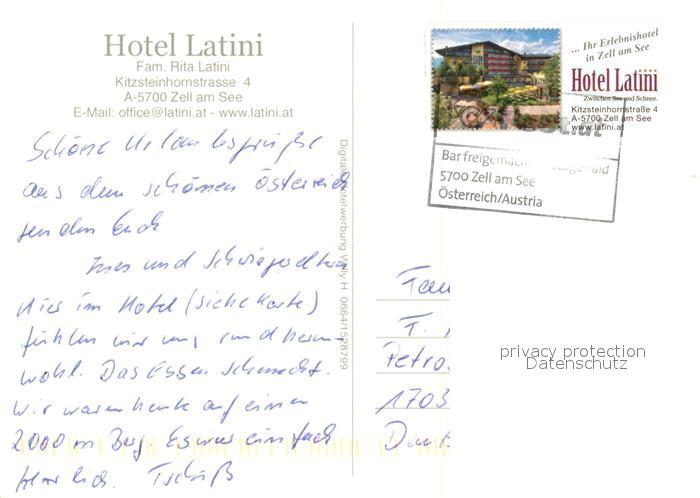 Hotel Latini
Fam. Rita Latini
Kitzsteinhornstrasse 4
A-5700 Zell am See
E-Mail: office@latini.at - www.latini.at
Schöne Urlaubsgrüße
aus dem schönen Österreich
senden Euch
Ines und Schwiegereltern
Hier im Hotel (siehe Karte)
fühlen wir uns rundherum
wohl. Das Essen schmeckt.
Wir waren heute auf einem
2000 m Berg. Es war einfach
herrlich. Tschüß
Digital Hotelwerbung Willy H 0664/1528799
... Ihr Erlebnishotel
in Zell am See
Hotel Latini
Zwischen See und Schnee.
Kitzsteinhornstraße 4
A-5700 Zell am See
www.latini.at
Bar freigemacht
5700 Zell am See
Österreich/Austria
Fam
F.
Petro
1703
privacy protection
Datenschutz